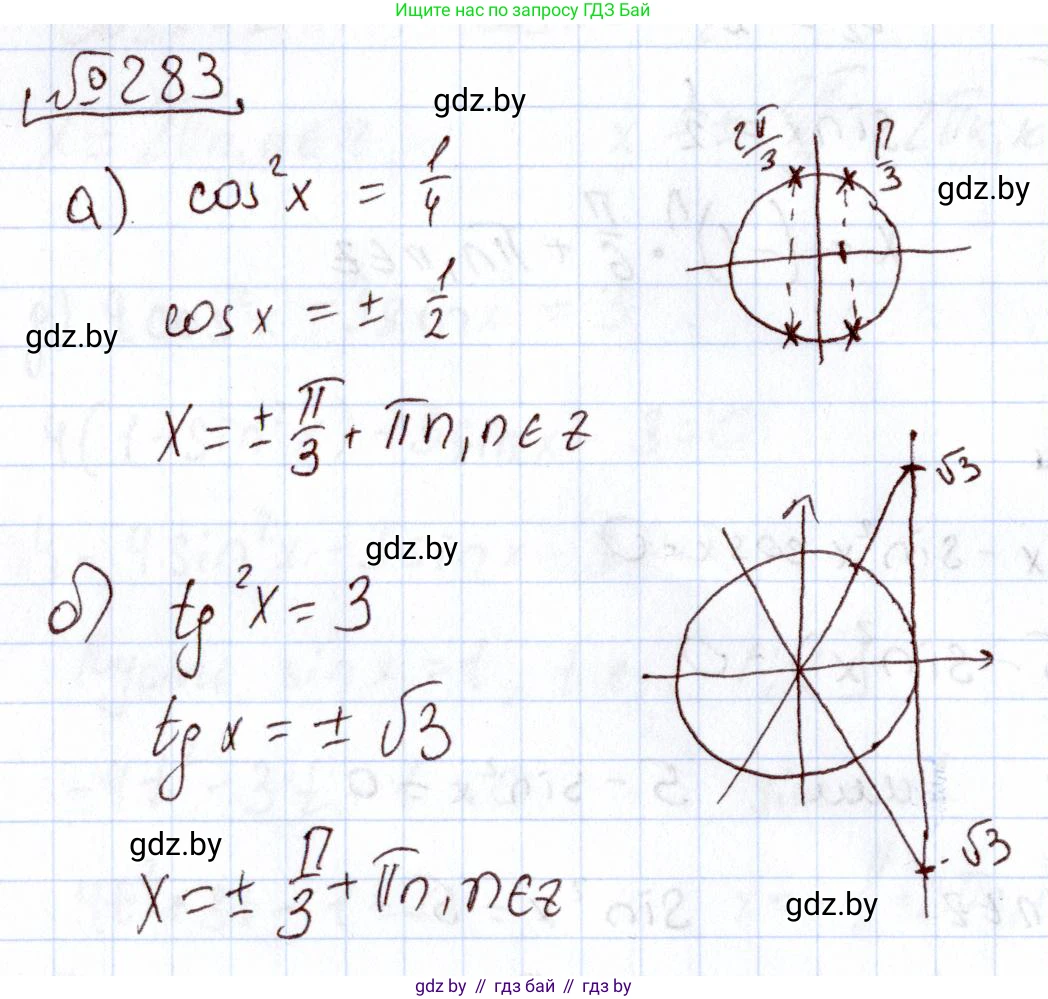 Ищите нас по запросу ГДЗ Бай
№283
gdz.by
а) cos²x = 1/4
2π/3
π/3
gdz.by
gdz.by
cos x = ± 1/2
x = ± π/3 + πn, n ∈ z
√3
gdz.by
б) tg²x = 3
tg x = ± √3
gdz.by
x = ± π/3 + πn, n ∈ z
-√3
gdz.by
gdz.by // гдз бай // гдз by